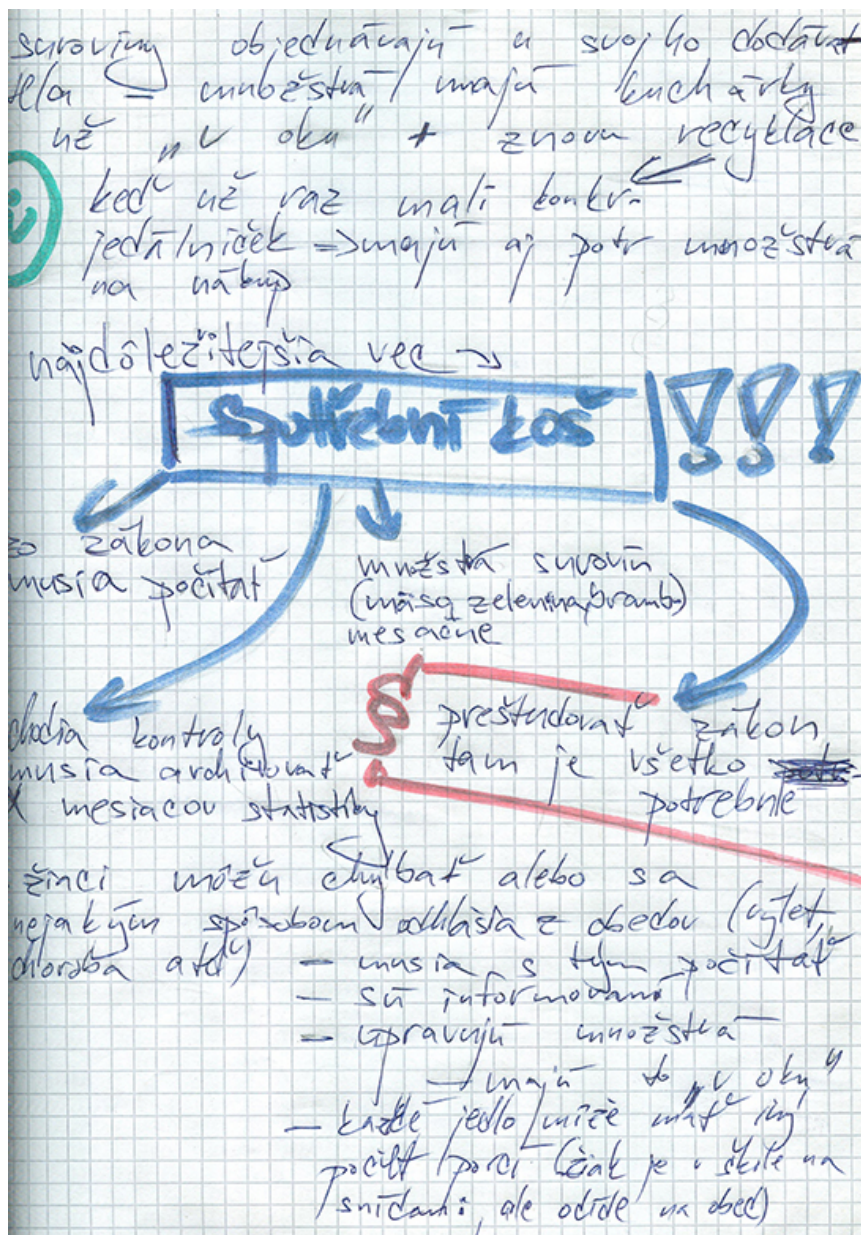 suroviny objednávajú u svojho dodávat
eľa = množstvá majú kuchárky
už „v oku" + znovu recyklace
keď už raz mali konkr.
jedálníček => majú aj potr množstvá
na nákup
najdôležitejšia vec →
spotřební koš !!!
zo zákona
musia počítať
množstvá surovín
(mäso, zelenina, bramb.)
mesačne
chodia kontroly
musia archivovať
X mesiacov statistiky
§ preštudovať zákon
tam je všetko
potrebnie
- žiaci môžu chýbať alebo sa
nejakým spôsobom odhlásia z obedov (výlet,
choroba atď)
- musia s tým počítať
- sú informovaní
- upravujú množstvá
→ majú to „v oku"
- každé jedlo môže mať iný
počet porcí (žiak je v škole na
snídani, ale odíde na obed)